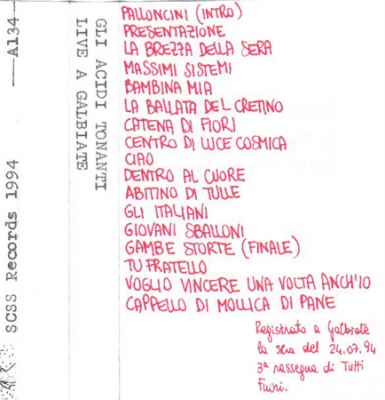 A134
SCSS Records 1994
GLI ACIDI TONANTI
LIVE A GALBIATE
PALLONCINI (INTRO)
PRESENTAZIONE
LA BREZZA DELLA SERA
MASSIMI SISTEMI
BAMBINA MIA
LA BALLATA DEL CRETINO
CATENA DI FIORI
CENTRO DI LUCE COSMICA
CIAO
DENTRO AL CUORE
ABITINO DI TULLE
GLI ITALIANI
GIOVANI SBALLONI
GAMBE STORTE (FINALE)
TU FRATELLO
VOGLIO VINCERE UNA VOLTA ANCH'IO
CAPPELLO DI MOLLICA DI PANE
Registrato a Galbiate
la sera del 24.07.94
3ª rassegna di Tutti
Fuori.